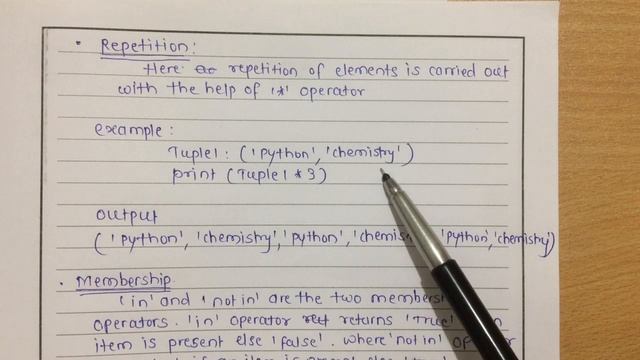 • Repetition:
Here repetition of elements is carried out
with the help of '*' operator
example:
Tuple1: ('Python', 'chemistry')
print (Tuple1 * 3)
output
('Python', 'chemistry', 'Python', 'chemis 'Python', 'chemistry')
• Membership
'in' and 'not in' are the two members
operators. 'in' operator returns 'True'
item is present else 'false'. where 'not in'